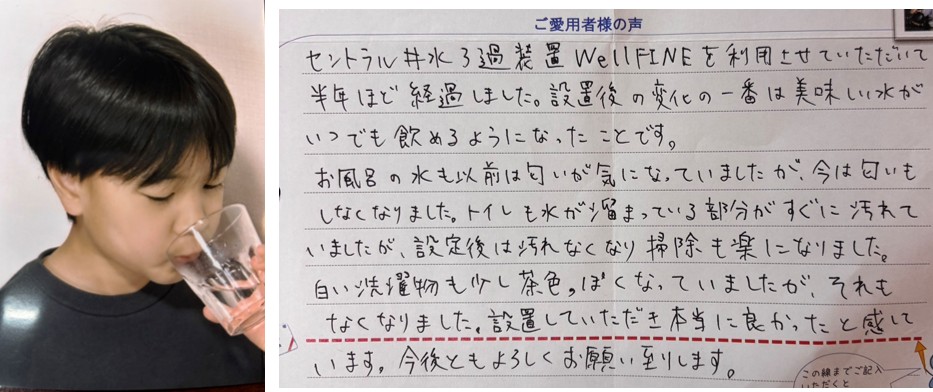 ご愛用者様の声
セントラル井水ろ過装置WellFINEを利用させていただいて
半年ほど経過しました。設置後の変化の一番は美味しい水が
いつでも飲めるようになったことです。
お風呂の水も以前は匂いが気になっていましたが、今は匂いも
しなくなりました。トイレも水が溜まっている部分がすぐに汚れて
いましたが、設定後は汚れなくなり掃除も楽になりました。
白い洗濯物も少し茶色っぽくなっていましたが、それも
なくなりました。設置していただき本当に良かったと感じて
います。今後ともよろしくお願い至します。
この線までご記入
いただくと